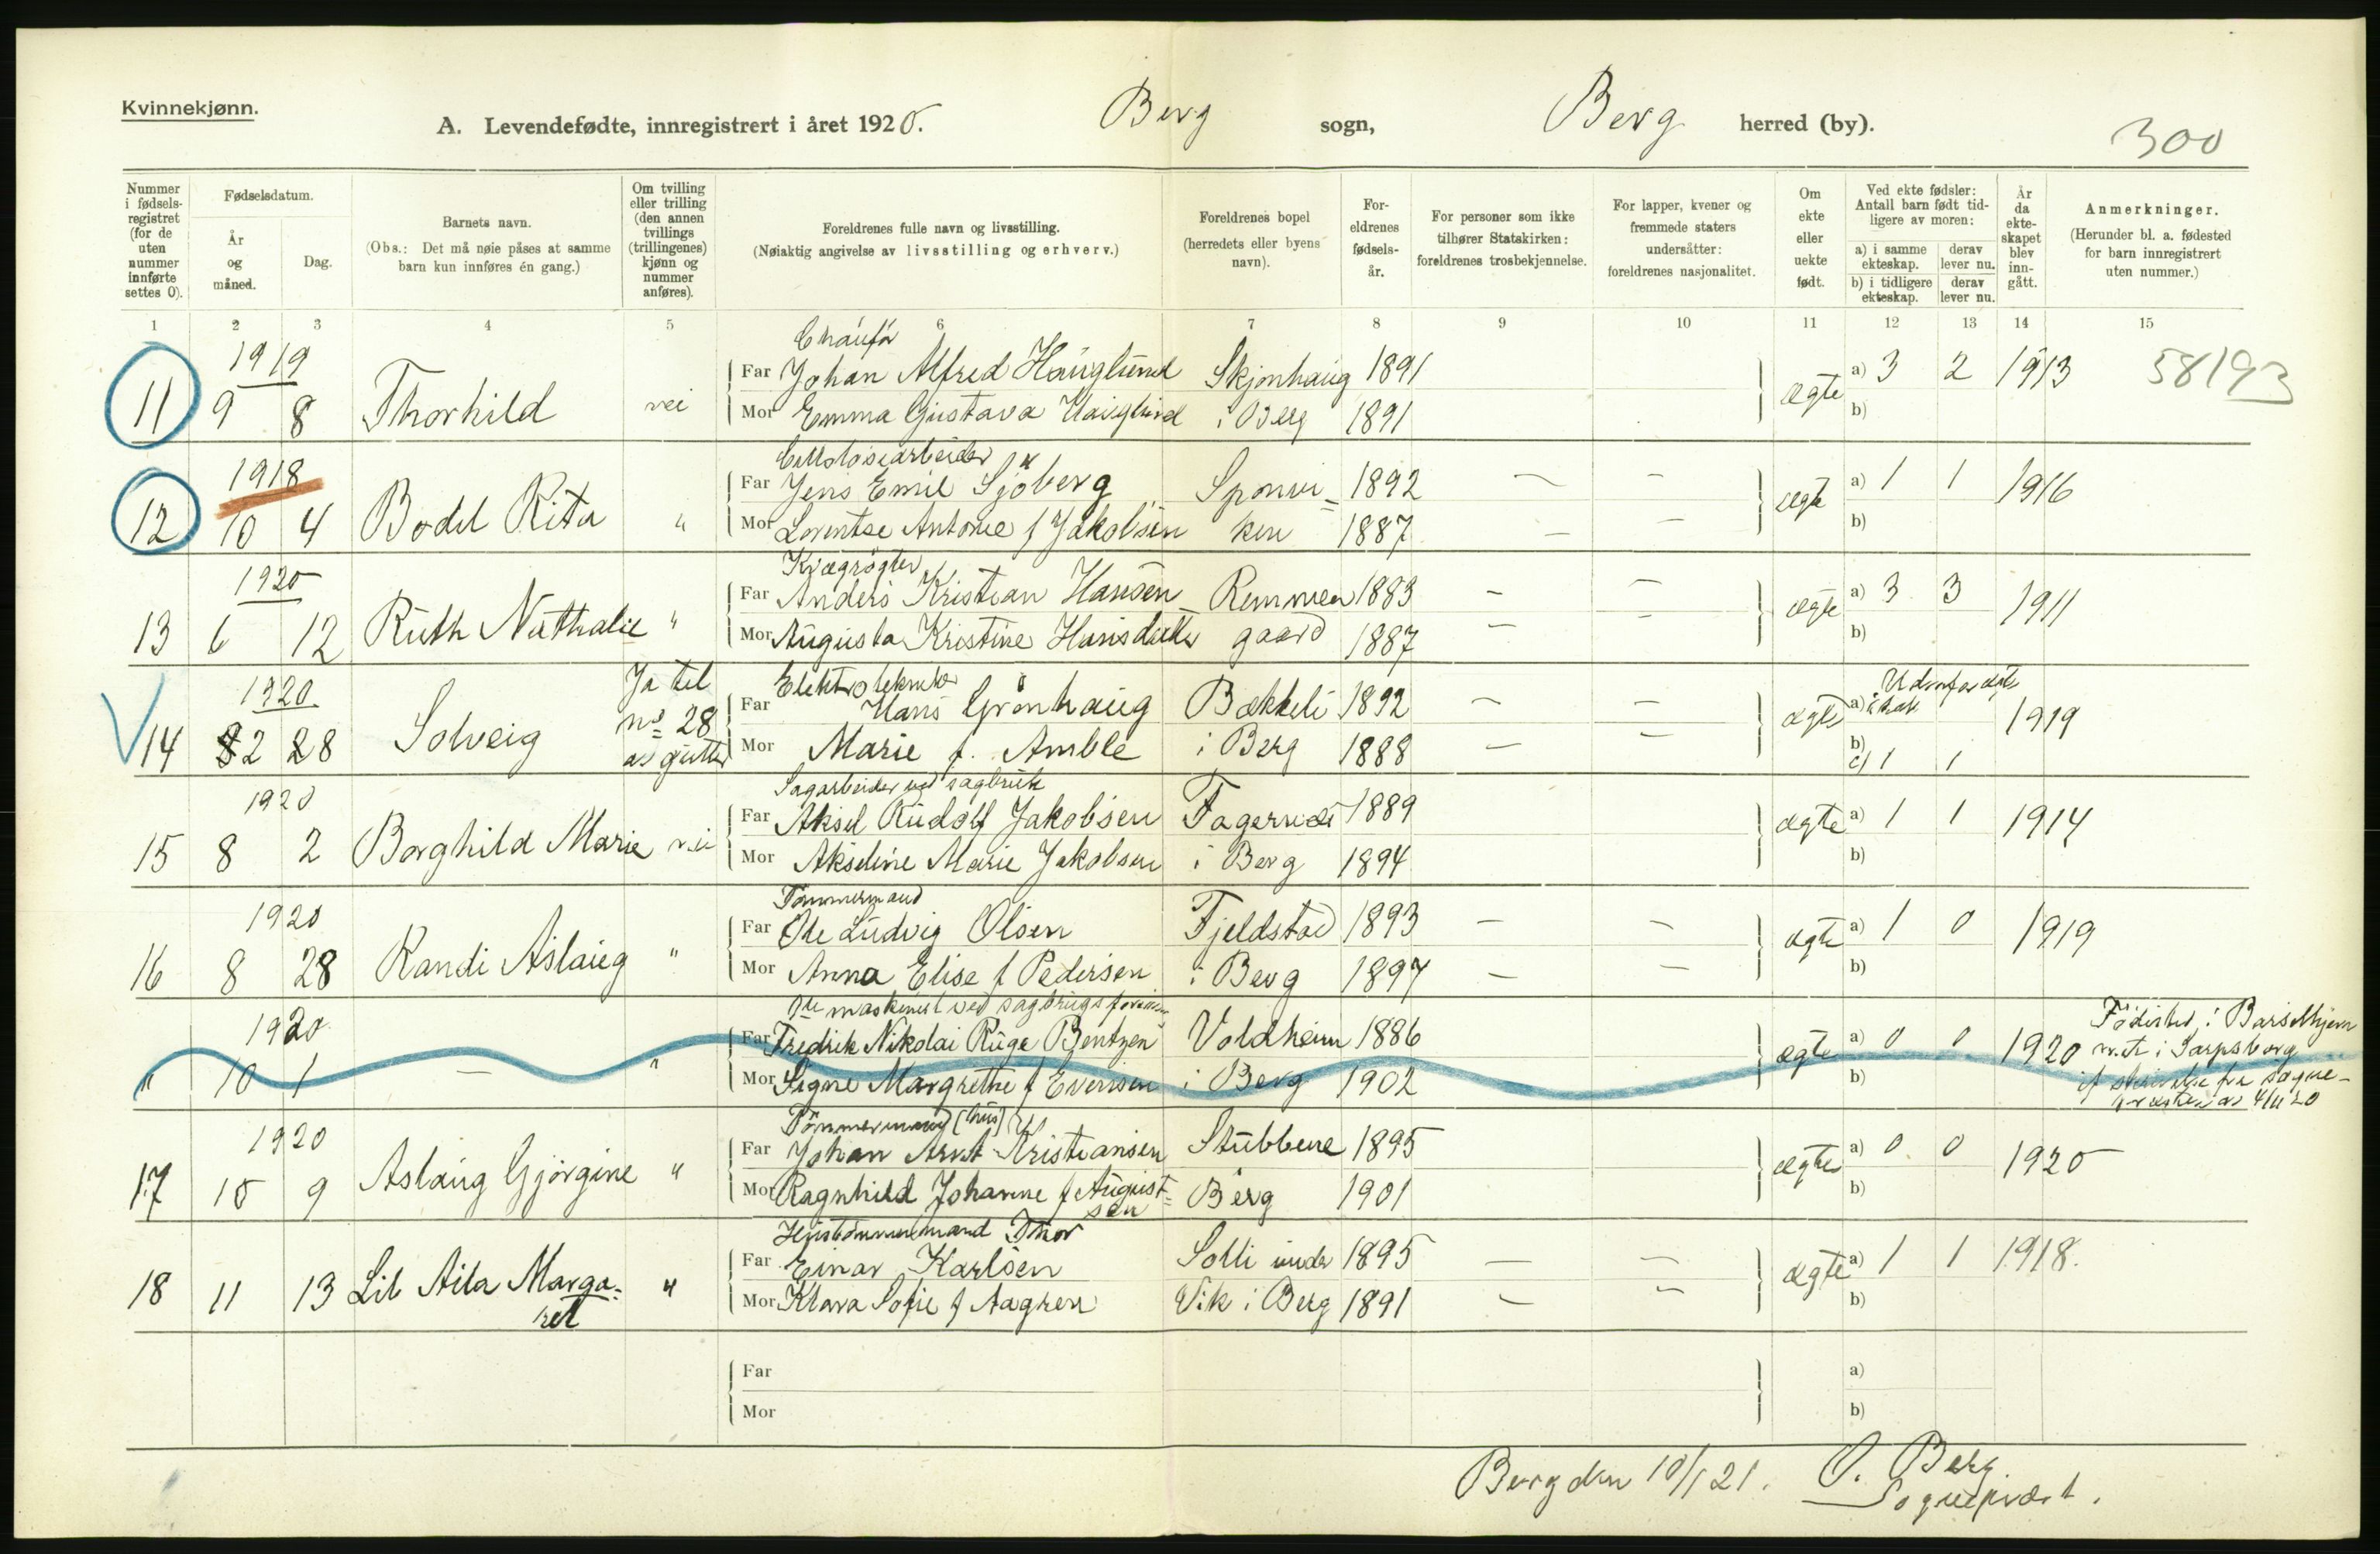 Kvinnekjønn.
A. Levendefødte, innregistrert i året 1920. Berg sogn, Berg herred (by). 300
Nummer i fødsels-registret (for de uten nummer innførte settes 0).
Fødselsdatum.
År og måned.
Dag.
Barnets navn.
(Obs.: Det må nøie påses at samme barn kun innføres én gang.)
Om tvilling eller trilling (den annen tvillings (trillingenes) kjønn og nummer anføres).
Foreldrenes fulle navn og livsstilling.
(Nøiaktig angivelse av livsstilling og erhverv.)
Foreldrenes bopel (herredets eller byens navn).
For-eldrenes fødsels-år.
For personer som ikke tilhører Statskirken: foreldrenes trosbekjennelse.
For lapper, kvener og fremmede staters undersåtter: foreldrenes nasjonalitet.
Om ekte eller uekte født.
Ved ekte fødsler: Antall barn født tid-ligere av moren:
a) i samme ekteskap. derav lever nu.
b) i tidligere ekteskap. derav lever nu.
År da ekte-skapet blev inn-gått.
Anmerkninger.
(Herunder bl. a. fødested for barn innregistrert uten nummer.)
1 2 3 4 5 6 7 8 9 10 11 12 13 14 15
1919 Chaufør
Far Johan Alfred Hauglund Skjønhaug 1891 a) 3 2 1913 58193
11 9 8 Thorhild nei Mor Emma Gustava Hauglund i Berg 1891 ægte b)
1918 Cellulosearbeider
Far Jens Emil Sjöberg Sponvi- 1892 — — a) 1 1 1916
12 10 4 Bodil Rita " Mor Lorentse Antonie f Jakobsen ken 1887 — — ægte b)
1920 Kvægrøgter
Far Anders Kristian Hansen Remmen 1883 — — a) 3 3 1911
13 6 12 Ruth Nathalie " Mor Augusta Kristine Hansdatter gaard 1887 — — ægte b)
1920 Ja tel Elektrotekniker
Far Hans Grønhaug Bakkeli 1892 — — a) 1919
14 2 28 Solveig no 28 av gutter Mor Marie f. Amble i Berg 1888 — — ægte b)
c) 1 1
1920 Sagarbeider ved sagbruk
Far Aksel Rudolf Jakobsen Fagernæs 1889 a) 1 1 1914
15 8 2 Borghild Marie nei Mor Akseline Marie Jakobsen i Berg 1894 ægte b)
1920 Tømmermand
Far Ole Ludvig Olsen Fjeldstad 1893 — — a) 1 0 1919
16 8 28 Randi Aslaug " Mor Anna Elise f Pedersen i Berg 1897 — — ægte b)
1920 maskinist ved sagbrugsforening
Far Fredrik Nikolai Ruge Bentzen Voldheim 1886 a) 0 0 1920 Fødested: Barselhjem
" 10 1 — " Mor Signe Margrethe f Evensen i Berg 1902 ægte b) met i Sarpsborg
if skrivelse fra sogne-
presten av 4/11 20
1920 Tømmermand (hus)
Far Johan Arnt Kristiansen Stubbene 1895 a) 0 0 1920
17 10 9 Aslaug Gjørgine " Mor Ragnhild Johanne f August-sen Berg 1901 ægte b)
Hustømmermand Thor
Far Einar Karlsen Solli under 1895 — — a) 1 1 1918.
18 11 13 Lil Aila Marga-ret " Mor Klara Sofie f Aagren Vik i Berg 1891 — — ægte b)
Far a)
Mor b)
Berg den 10/1 21. O. Berg
Sogneprest.